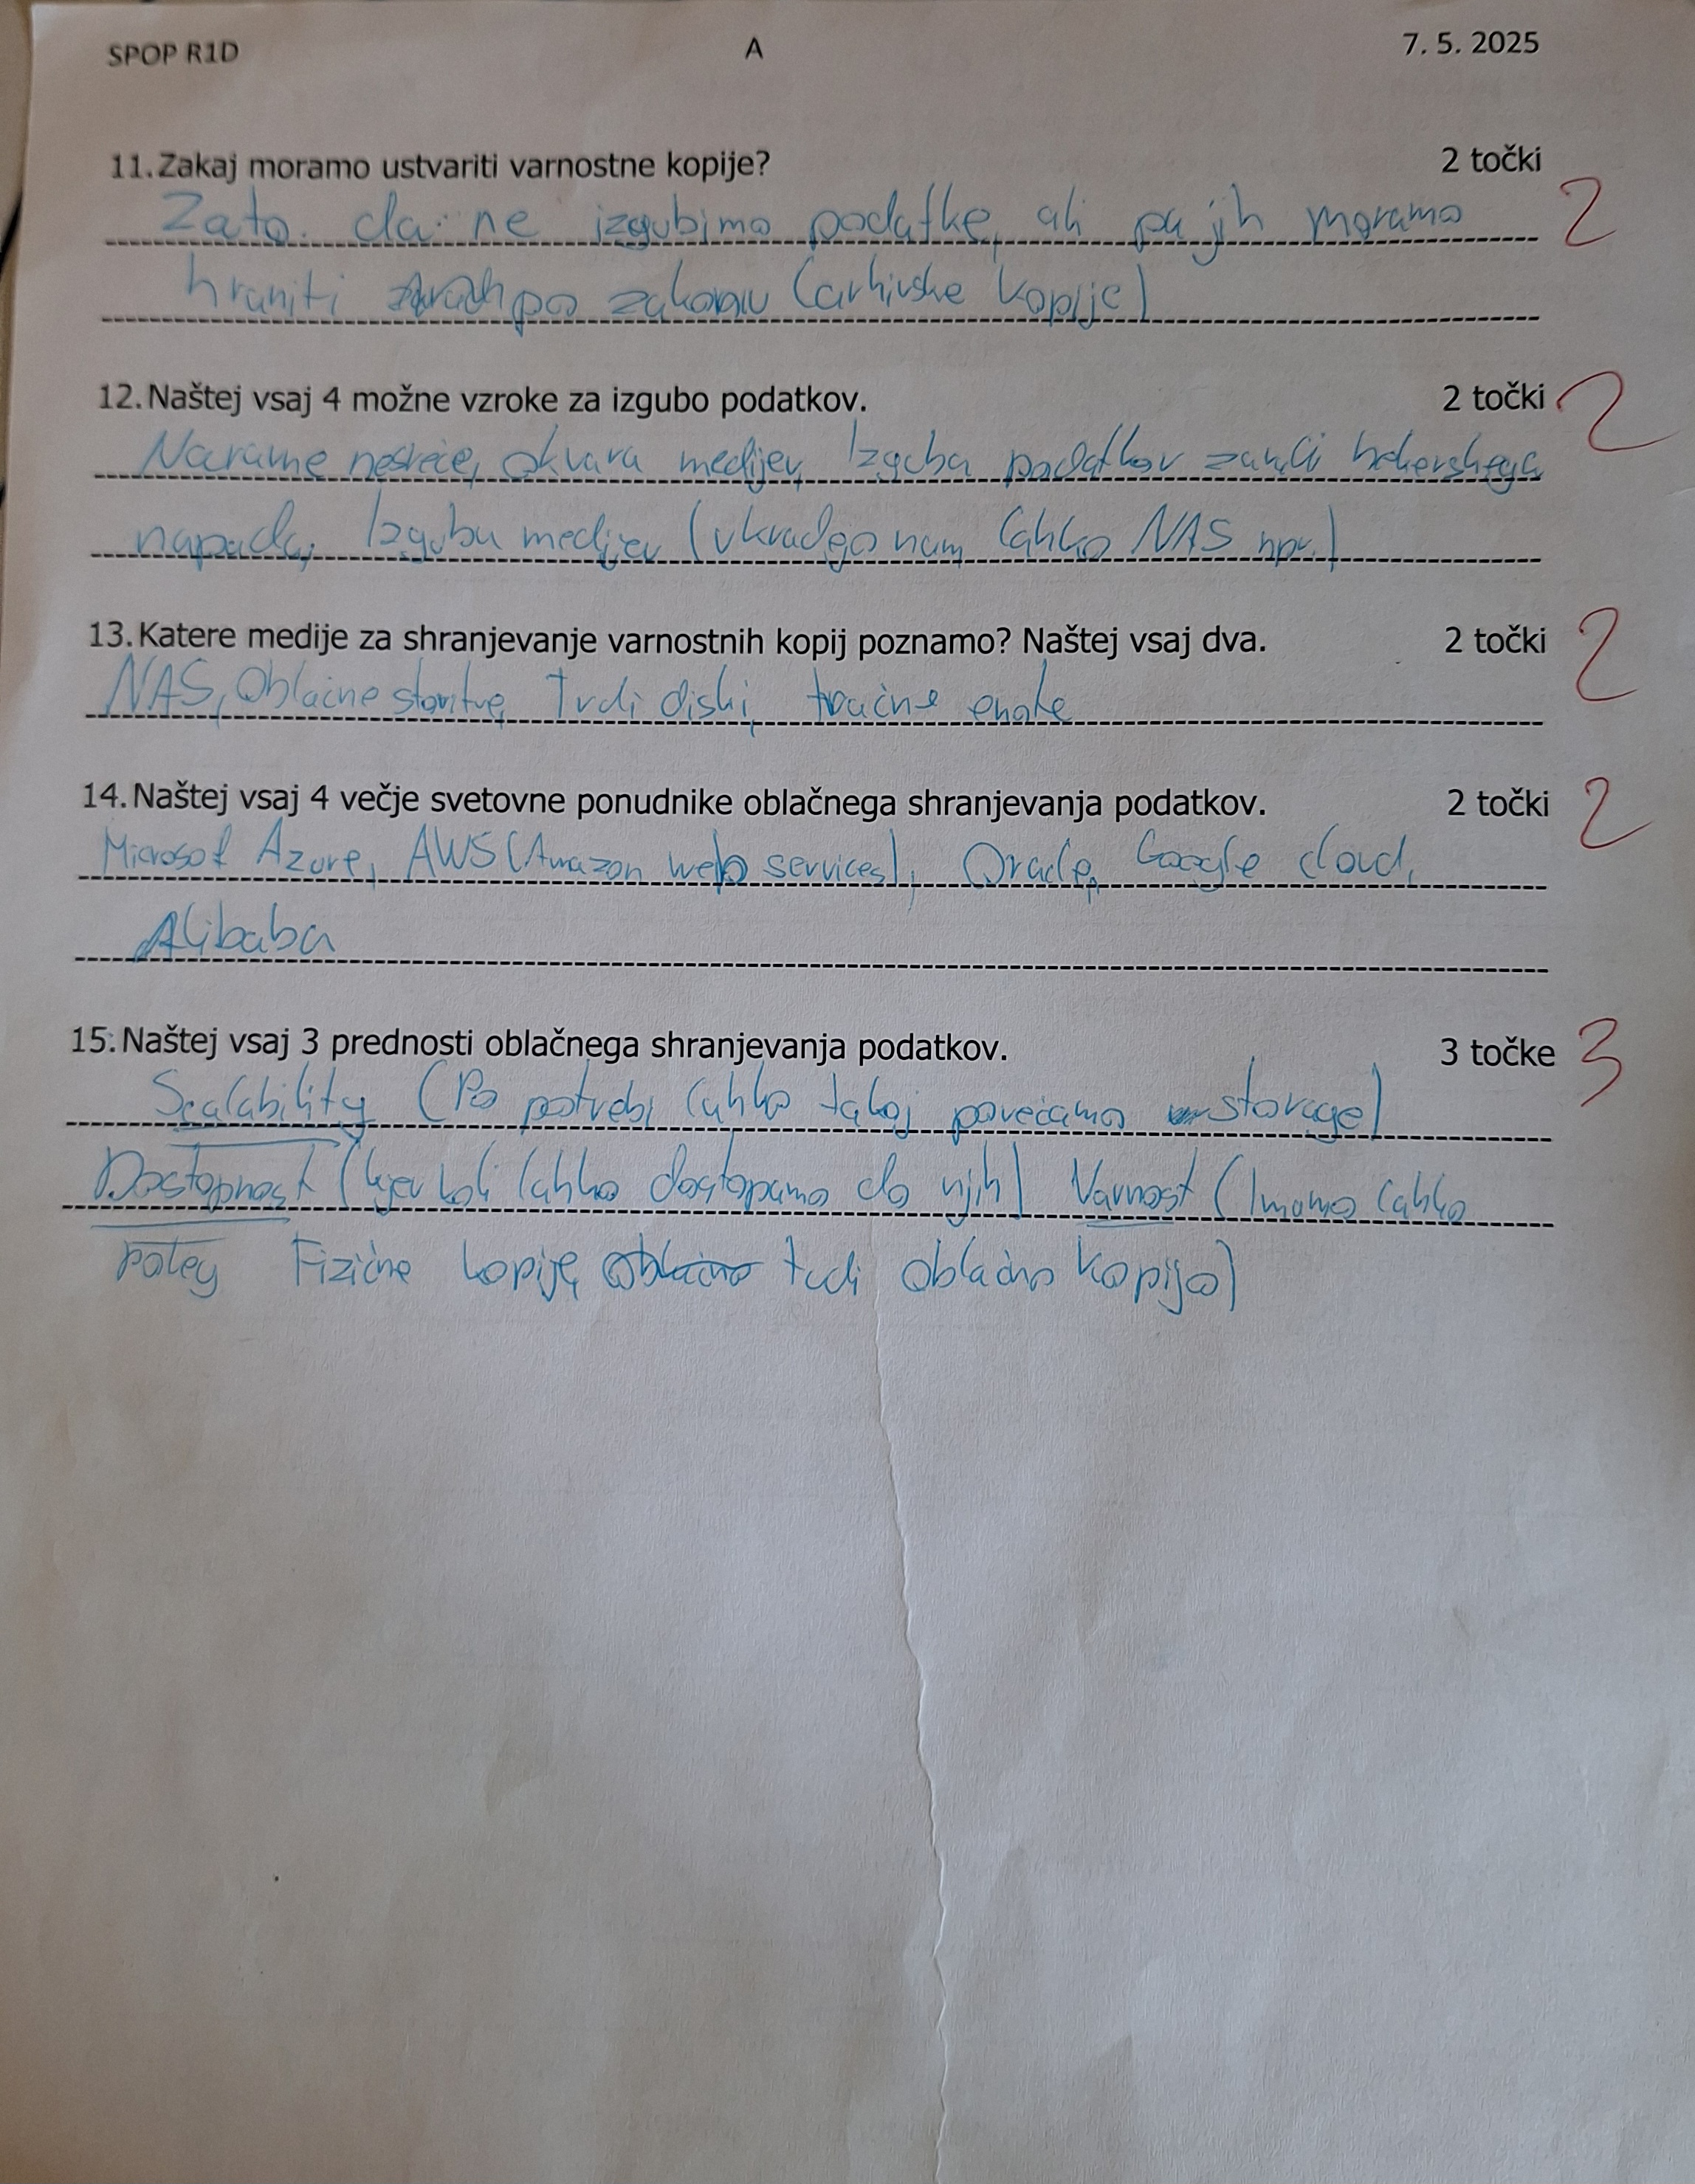 SPOP R1D A 7. 5. 2025
11. Zakaj moramo ustvariti varnostne kopije? 2 točki
Zato da ne izgubimo podatke, ali pa jih moramo 2
hraniti po zakonu (arhivske kopije)
12. Naštej vsaj 4 možne vzroke za izgubo podatkov. 2 točki 2
Naravne nesreče, okvara medijev, Izguba podatkov zaradi hekerskega
napada, Izguba medijev (ukradejo nam lahko NAS npr.)
13. Katere medije za shranjevanje varnostnih kopij poznamo? Naštej vsaj dva. 2 točki 2
NAS, Oblačne storitve, Trdi diski, tračne enote
14. Naštej vsaj 4 večje svetovne ponudnike oblačnega shranjevanja podatkov. 2 točki 2
Microsoft Azure, AWS (Amazon web services), Oracle, Google cloud,
Alibaba
15. Naštej vsaj 3 prednosti oblačnega shranjevanja podatkov. 3 točke 3
Scalability (Po potrebi lahko takoj povečamo storage)
Dostopnost (kjer koli lahko dostopamo do njih) Varnost (Imamo lahko
poleg Fizične kopije oblačno tudi oblačno kopijo)